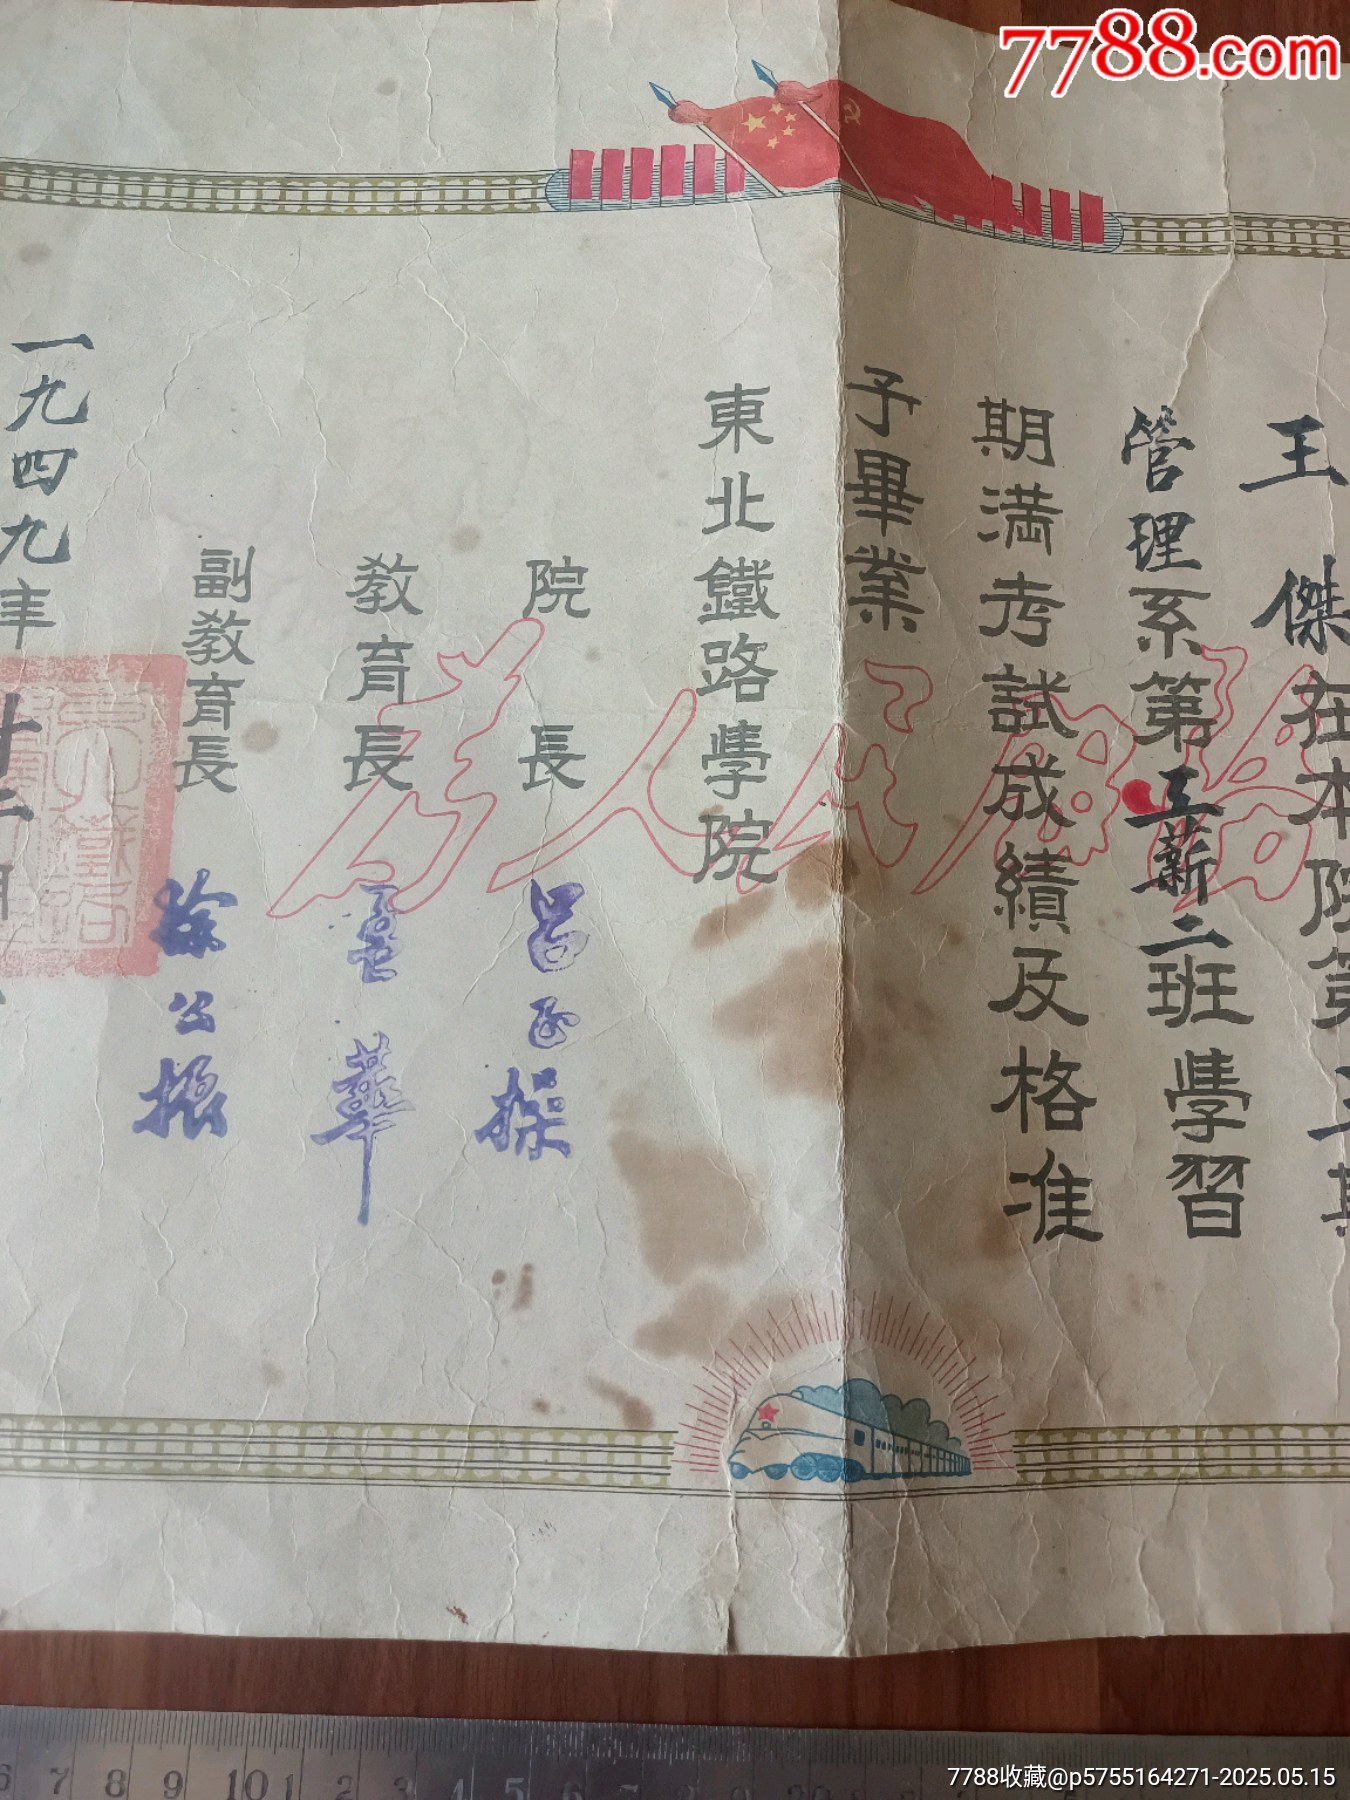 7788.com
王傑在本院第
管理系第工薪二班學習
期满考試成績及格准
予畢業
東北鐵路學院
院長 呂正操
教育長 華
副教育長 徐公振
一九四九年十二月
為人民服務
6 7 8 9 10 1 2 3 4 5 6 7 8 9 20
7788收藏@p5755164271-2025.05.15